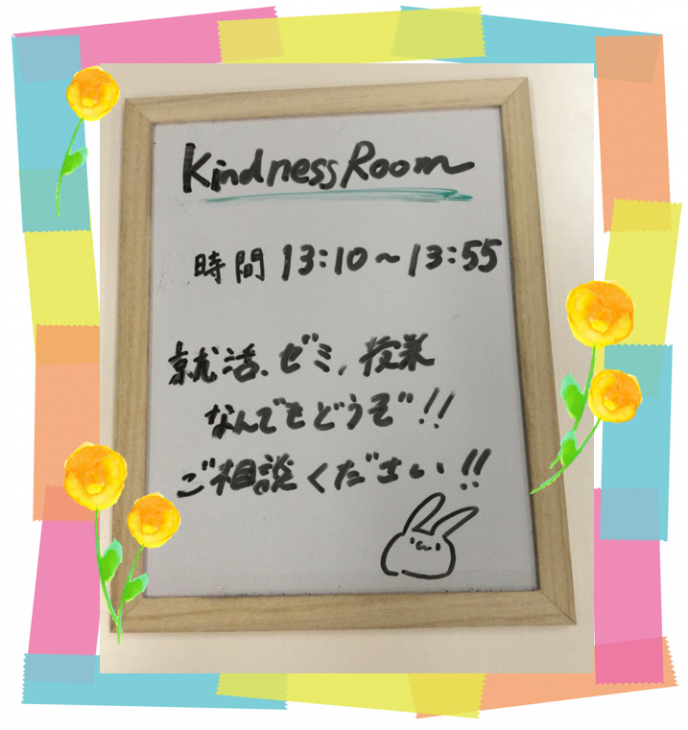 Kindness Room
時間 13:10～13:55
就活、ゼミ、授業
なんでもどうぞ!!
ご相談ください!!